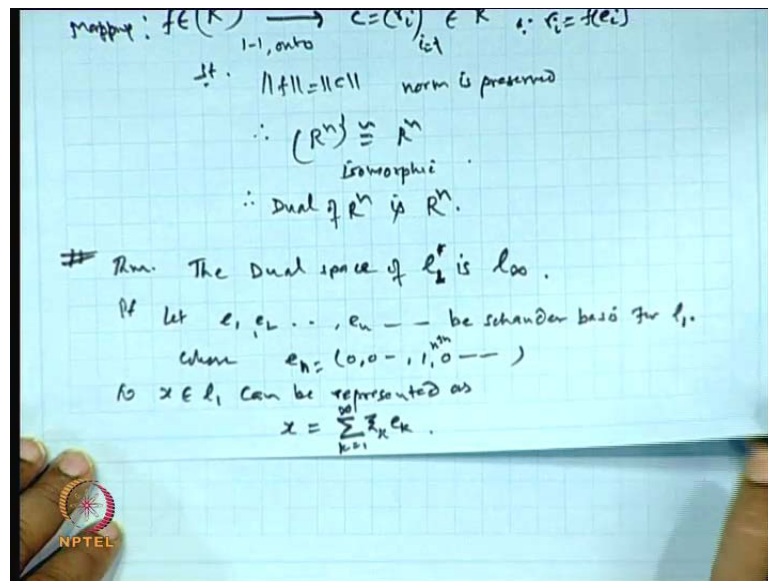 Mapping: f∈(R^n)' ⟶ c=(r_i)_{i=1}^n ∈ R^n ∵ r_i = f(e_i)
1-1, onto
st. ||f||=||c|| norm is preserved
∴ (R^n)' ≅ R^n
isomorphic
∴ Dual of R^n is R^n.
# Thm. The Dual space of l_1 is l_∞.
Pf Let e_1, e_2 .., e_n -- be schauder basis for l_1.
where e_n = (0,0 -, 1^{nth}, 0 --- )
so x ∈ l_1 can be represented as
x = ∑_{k=1}^∞ ξ_k e_k .
NPTEL